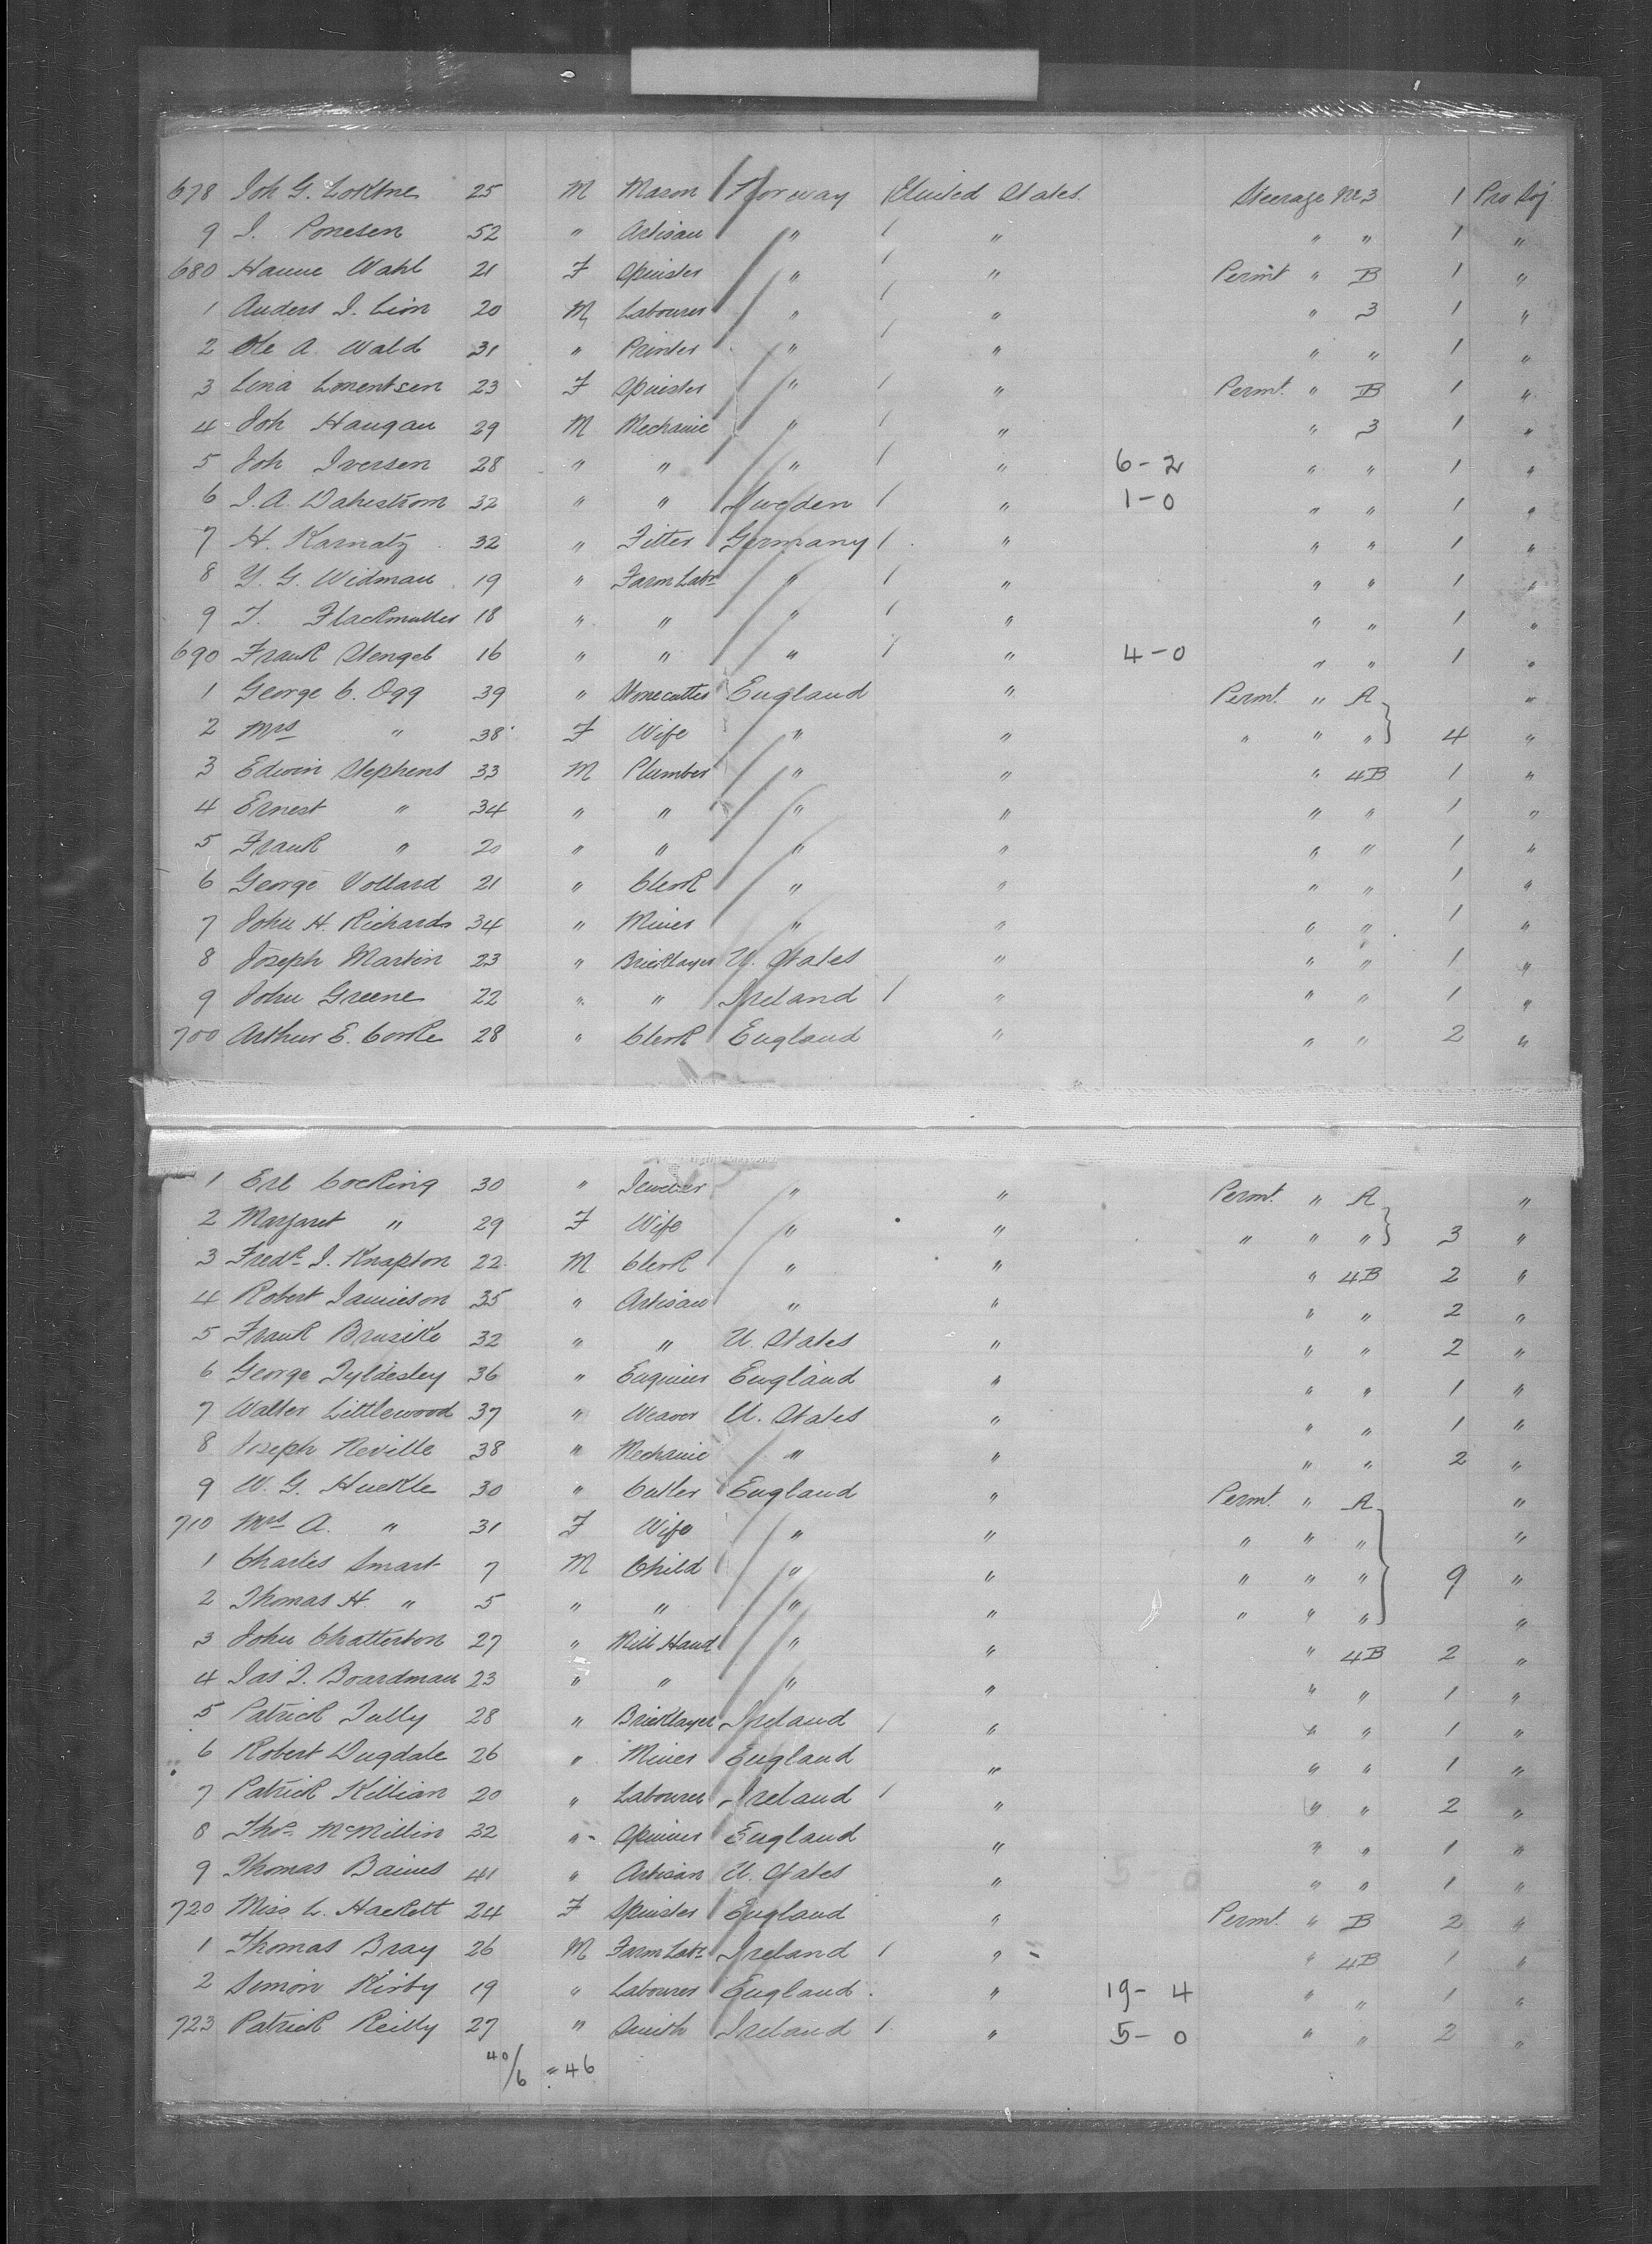 678 Joh G. Loktne 25 M Mason Norway United States Steerage No 3 1 Pro Soj.
9 J. Ponesen 52 " Artisan " / " " " 1 "
680 Hanne Wahl 21 F Spinster " / " Permt " B 1 "
1 Anders J. Lion 20 M Labourer " / " " 3 1 "
2 Ole A. Wald 31 " Printer " / " " " 1 "
3 Lena Lorentsen 23 F Spinster " / " Permt. " B 1 "
4 Joh Haugan 29 M Mechanic " / " " 3 1 "
5 Joh Iversen 28 " " " / " 6-2 " " 1 "
6 J. A. Dahlstrom 32 " " Sweden / " 1-0 " " 1 "
7 H. Karnatz 32 " Fitter Germany / " " " 1 "
8 Y. G. Widman 19 " Farm Labr " / " " " 1 "
9 T. Flackmuller 18 " " " / " " " 1 "
690 Frank Stengel 16 " " " / " 4-0 " " 1 "
1 George C. Ogg 39 " Stonecutter England " Permt. " A "
2 Mrs " 38 F Wife " " " " " } 4 "
3 Edwin Stephens 33 M Plumber " " " 4B 1 "
4 Ernest " 34 " " " " " " 1 "
5 Frank " 20 " " " " " " 1 "
6 George Vollard 21 " Clerk " " " " 1 "
7 John H. Richards 34 " Miner " " " " 1 "
8 Joseph Martin 23 " Bricklayer U. States " " " 1 "
9 John Greene 22 " " Ireland / " " " 1 "
700 Arthur E. Cooke 28 " Clerk England " " " 2 "
1 Erl Cocking 30 " Jeweller " " Permt. " A "
2 Margaret " 29 F Wife " " " " " } 3 "
3 Fredk. J. Knapton 22 M Clerk " " " 4B 2 "
4 Robert Jamieson 35 " Artisan " " " " 2 "
5 Frank 32 " " U. States " " " 2 "
6 George Tyldesley 36 " Engineer England " " " 1 "
7 Walter Littlewood 37 " Weaver U. States " " " 1 "
8 Joseph Neville 38 " Mechanic " " " " 2 "
9 W. G. Huckle 30 " Cutler England " Permt. " A "
710 Mrs A. " 31 F Wife " " " " " "
1 Charles Smart 7 M Child " " " " " } 9 "
2 Thomas H. " 5 " " " " " " " "
3 John Chatterton 27 " Mill Hand " " " 4B 2 "
4 Jas J. Boardman 23 " " " " " " 1 "
5 Patrick Tully 28 " Bricklayer Ireland / " " " 1 "
6 Robert Dugdale 26 " Miner England " " " 1 "
7 Patrick Killian 20 " Labourer Ireland / " " " 2 "
8 Thos. McMillin 32 " Spinner England " " " 1 "
9 Thomas Baines 41 " Artisan U. States " " " 1 "
720 Miss L. Hackett 24 F Spinster England " Permt. " B 2 "
1 Thomas Bray 26 M Farm Labr Ireland / " " 4B 1 "
2 Simon Kirby 19 " Labourer England " 19-4 " " 1 "
723 Patrick Reilly 27 " Smith Ireland / " 5-0 " " 2 "
40/6 = 46